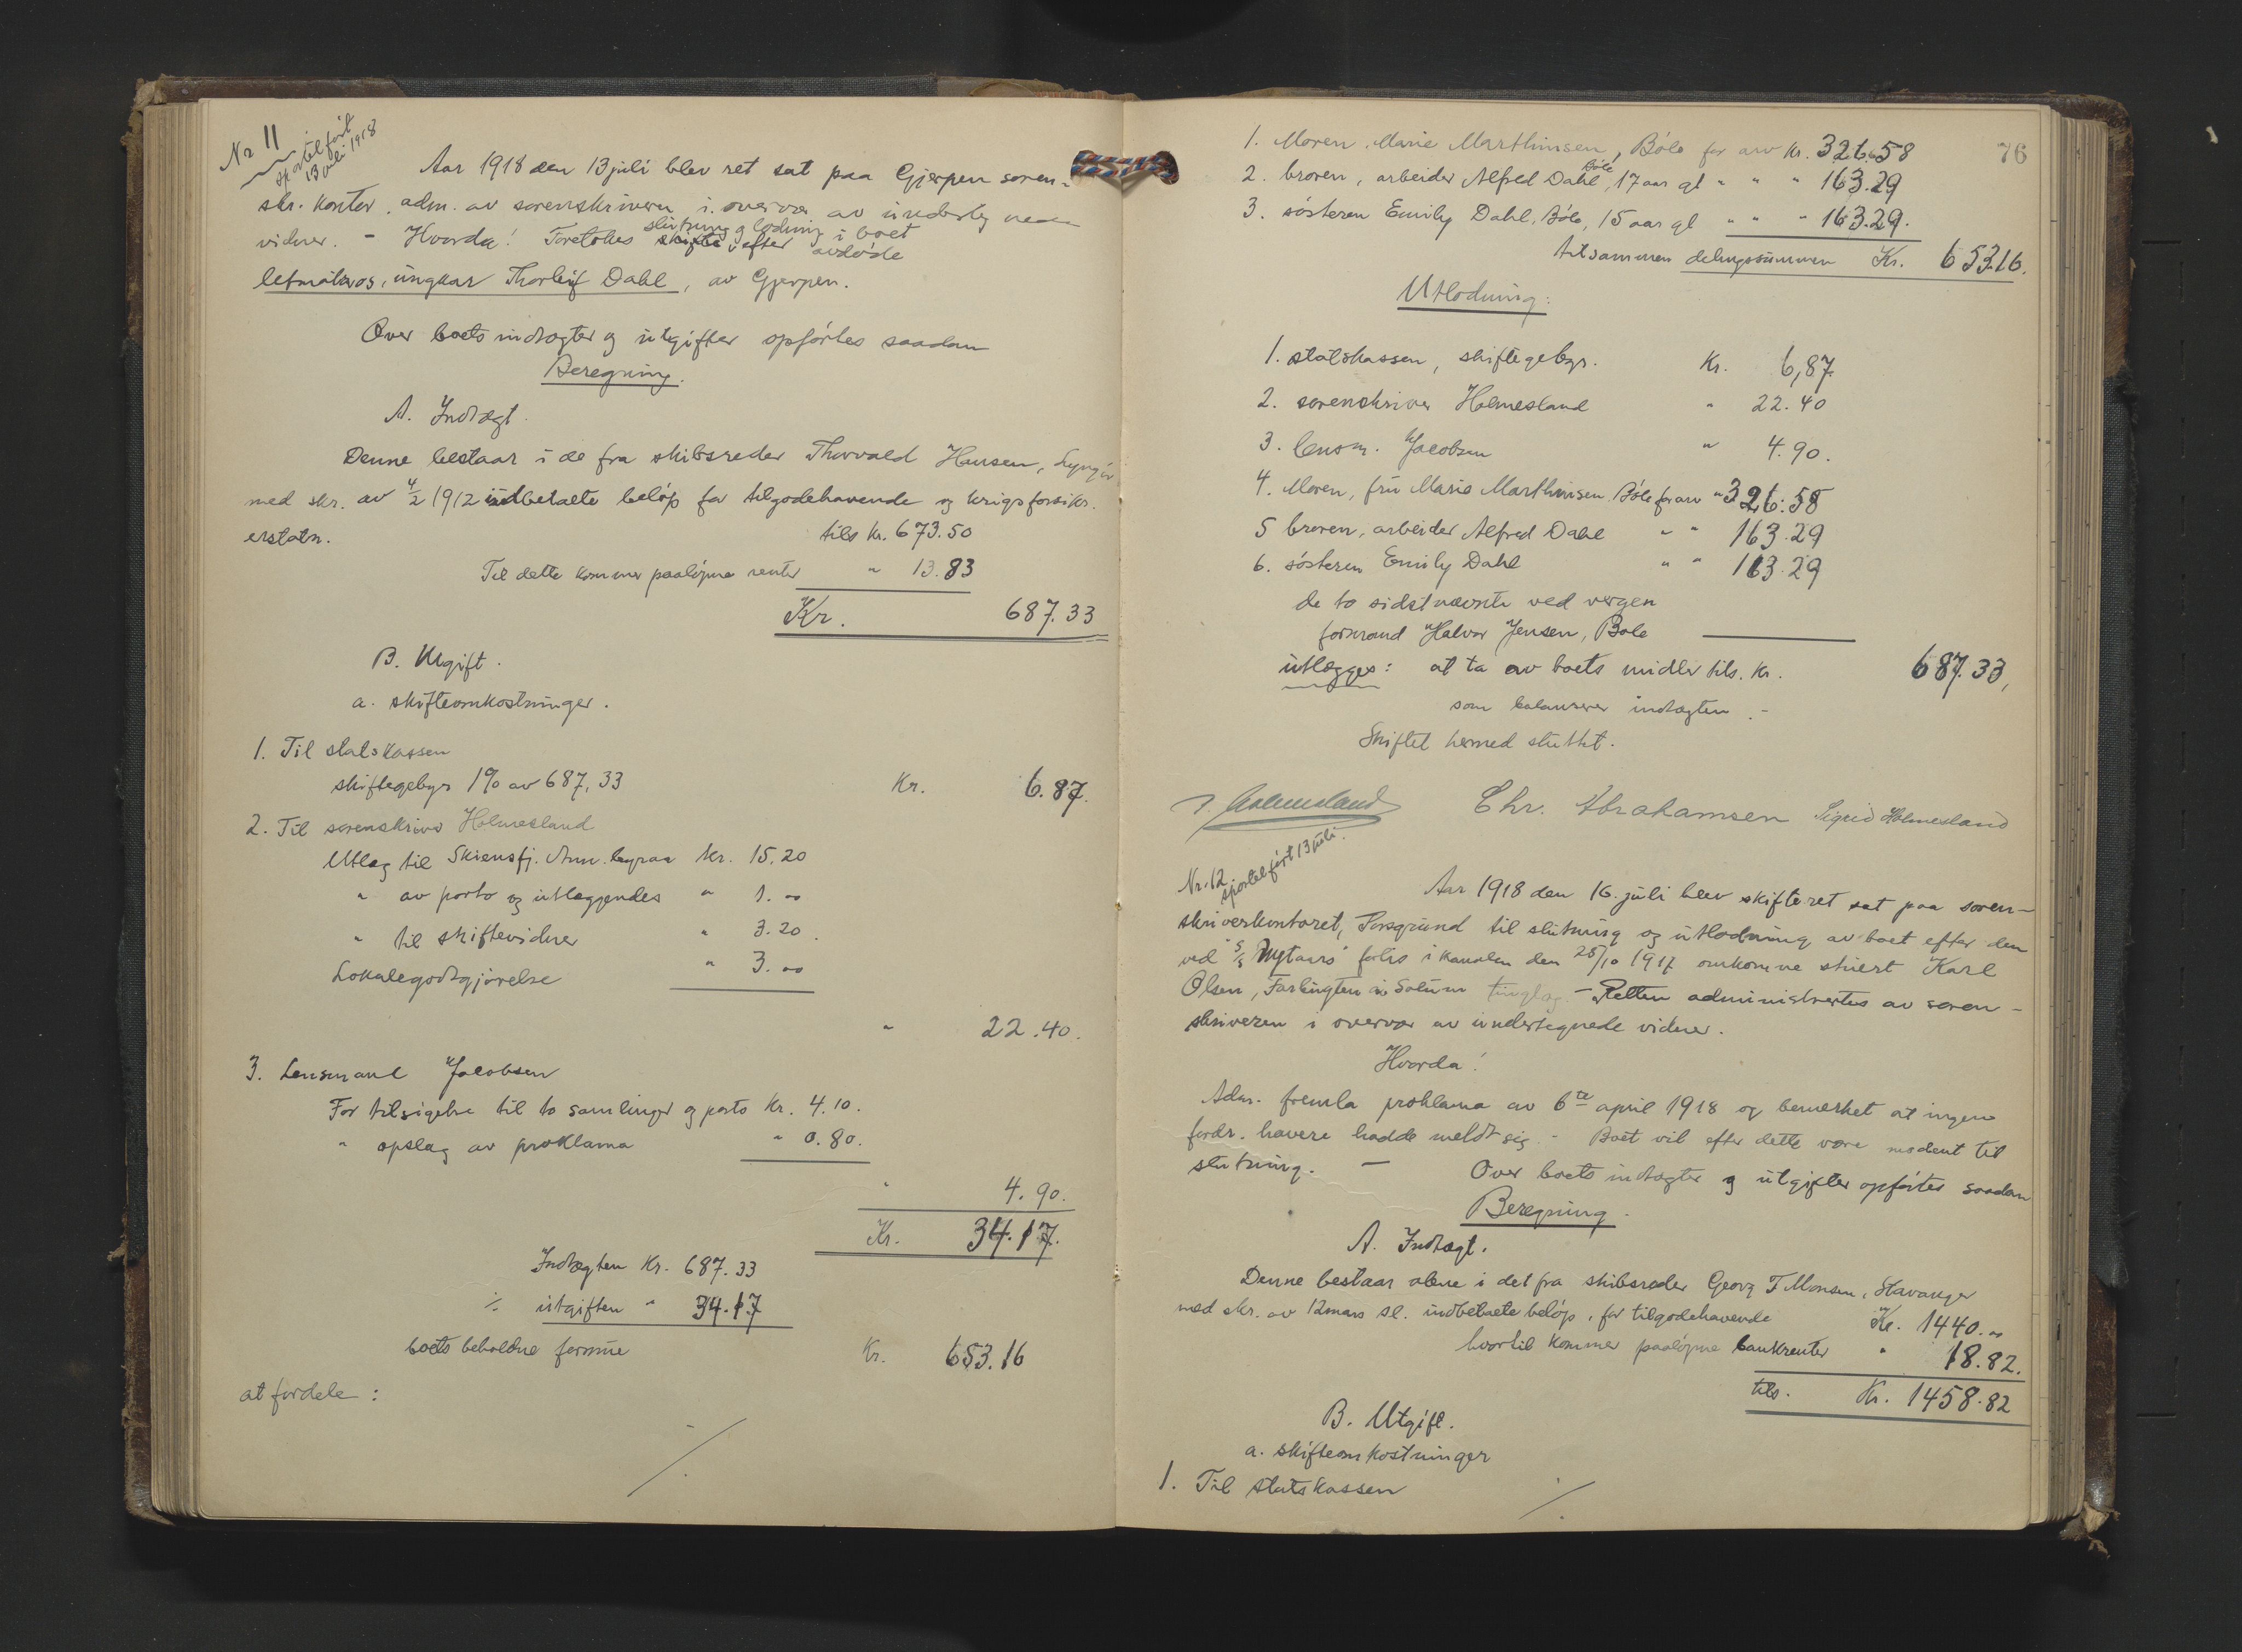 Nr 11
sportelført
13 juli 1918
Aar 1918 den 13 juli blev ret sat paa Gjerpen soren-
skr. kontor, adm. av sorenskriveren i overvær av undertegnede
vidner. - Hvorda! Foretokes slutning og lodning i boet
skifte i efter avdøde
letmatros, ungkar Thorleif Dahl, av Gjerpen.
Over boets indtægter og utgifter opførtes saadan
Beregning.
A. Indtægt.
Denne bestaar i de fra skibsreder Thorvald Hansen, Lyngør
med skr. av 4/2 1912 indbetalte beløp for tilgodehavende og krigsforsikr.
erstatn. tils kr. 673.50
Til dette kommer paaløpne renter " 13.83
Kr. 687.33
B. Utgift.
a. skifteomkostninger.
1. Til statskassen
skiftegebyr 1% av 687,33 Kr. 6.87.
2. Til sorenskriver Holmesland
Utlæg til Skiensfj. Ann. byraa Kr. 15.20
" av porto og utlæggendes " 1.00
" til skiftevidner " 3.20.
Lokalegodtgjørelse " 3.00
" 22.40.
3. Lensmand Jacobsen
For tilsigelse til to samlinger og porto Kr. 4.10.
" opslag av proklama " 0.80.
" 4.90.
Kr. 34.17.
Indtægten Kr. 687.33
÷ utgiften " 34.17
boets beholdne formue Kr. 653.16
at fordele :
76
1. Moren, Marie Marthinsen, Bøle for arv Kr. 326.58
2. broren, arbeider Alfred Dahl, Bøle, 17 aar gl " " " 163.29
3. søsteren Emily Dahl, Bøle, 15 aar gl " " " 163.29.
tilsammen delingssummen Kr. 653.16.
Utlodning:
1. statskassen, skiftegebyr. Kr. 6,87
2. sorenskriver Holmesland " 22.40
3. lensm. Jacobsen " 4.90.
4. Moren, fru Marie Marthinsen, Bøle for arv " 326.58
5 broren, arbeider Alfred Dahl " " 163.29
6. søsteren Emily Dahl " " 163.29
de to sidstnævnte ved vergen
formand Halvor Jensen, Bøle
utlægges: at ta av boets midler tils. Kr. 687.33,
som balanserer indtægten. -
Skiftet hermed sluttet.
Holmesland Chr. Abrahamsen Sigrid Holmesland
Nr. 12
sportelført 13 juli.
Aar 1918 den 16. juli blev skifteret sat paa soren-
skriverkontoret, Porsgrund til slutning og utlodning av boet efter den
ved S/S "Nytaars" forlis i kanalen den 25/10 1917 omkomne stuert Karl
Olsen, i Solum tinglag - Retten administrertes av soren-
skriveren i overvær av undertegnede vidner.
Hvorda!
Adm. fremla proklama av 6te april 1918 og bemerket at ingen
fordr. havere hadde meldt sig. - Boet vil efter dette være modent til
slutning. - Over boets indtægter og utgifter opførtes saadan
Beregning.
A. Indtægt.
Denne bestaar alene i det fra skibsreder Georg T Monsen, Stavanger
med skr. av 12 mars sl. indbetalte beløp, for tilgodehavende Kr. 1440.00
hvortil kommer paaløpne bankrenter " 18.82.
tils. Kr. 1458.82
B. Utgift.
a. skifteomkostninger
1. Til statskassen